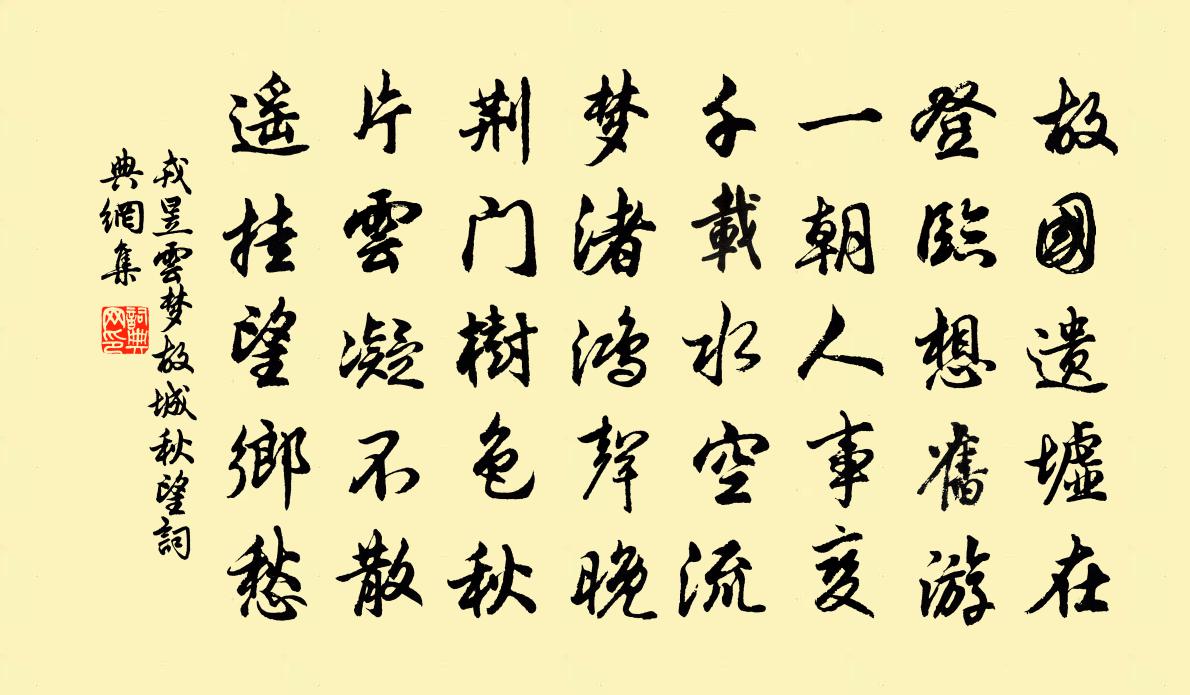 故國遗墟在
登臨想舊游
一朝人事变
千載水空流
梦渚鸿聲晚
荆门樹色秋
片雲凝不散
遥挂望鄉愁
戎昱雲梦故城秋望詞
典網集
詞典
网印